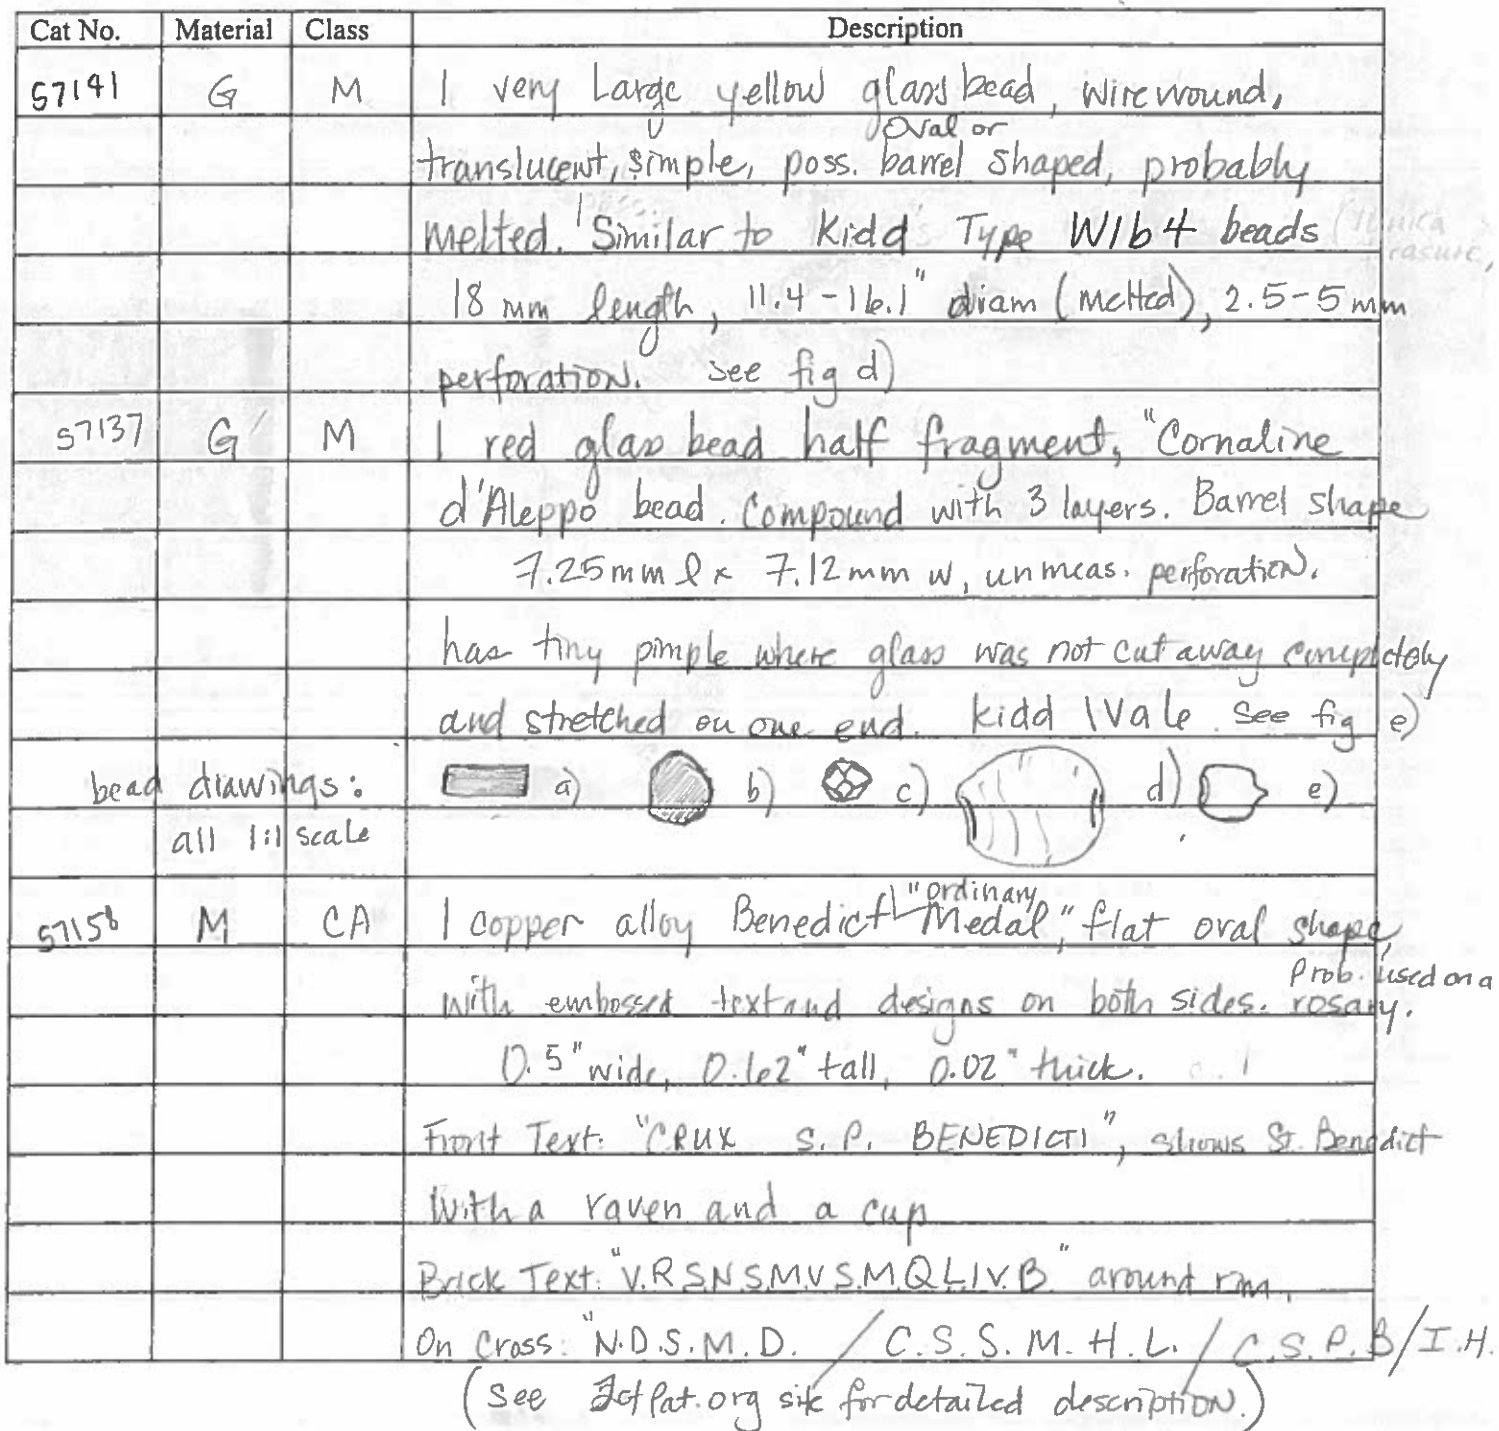 Cat No. Material Class Description
57141 G M 1 very Large yellow glass bead, wire wound,
Oval or
translucent, simple, poss. barrel shaped, probably
melted. Similar to Kidd Type WIb4 beads
18 mm length, 11.4-16.1" diam (melted), 2.5-5mm
perforation. see fig d)
57137 G M 1 red glass bead half fragment, "Cornaline
d'Aleppo bead. Compound with 3 layers. Barrel shape
7.25mm l x 7.12mm w, unmeas. perforation.
has tiny pimple where glass was not cut away completely
and stretched on one end. Kidd IVa6. See fig e)
bead drawings: a) b) c) d) e)
all 1:1 scale
"ordinary
57158 M CA 1 copper alloy Benedict Medal," flat oval shape,
Prob. used on a
with embossed text and designs on both sides. rosary.
0.5" wide, 0.62" tall, 0.02" thick.
Front Text: "CRUX S.P. BENEDICTI", shows St. Benedict
With a raven and a cup
Back Text: "V.R.S.N.S.M.V.S.M.Q.L.I.V.B." around rim,
On Cross: "N.D.S.M.D. / C.S.S.M.H.L. / C.S.P.B / I.H.
(See site for detailed description.)